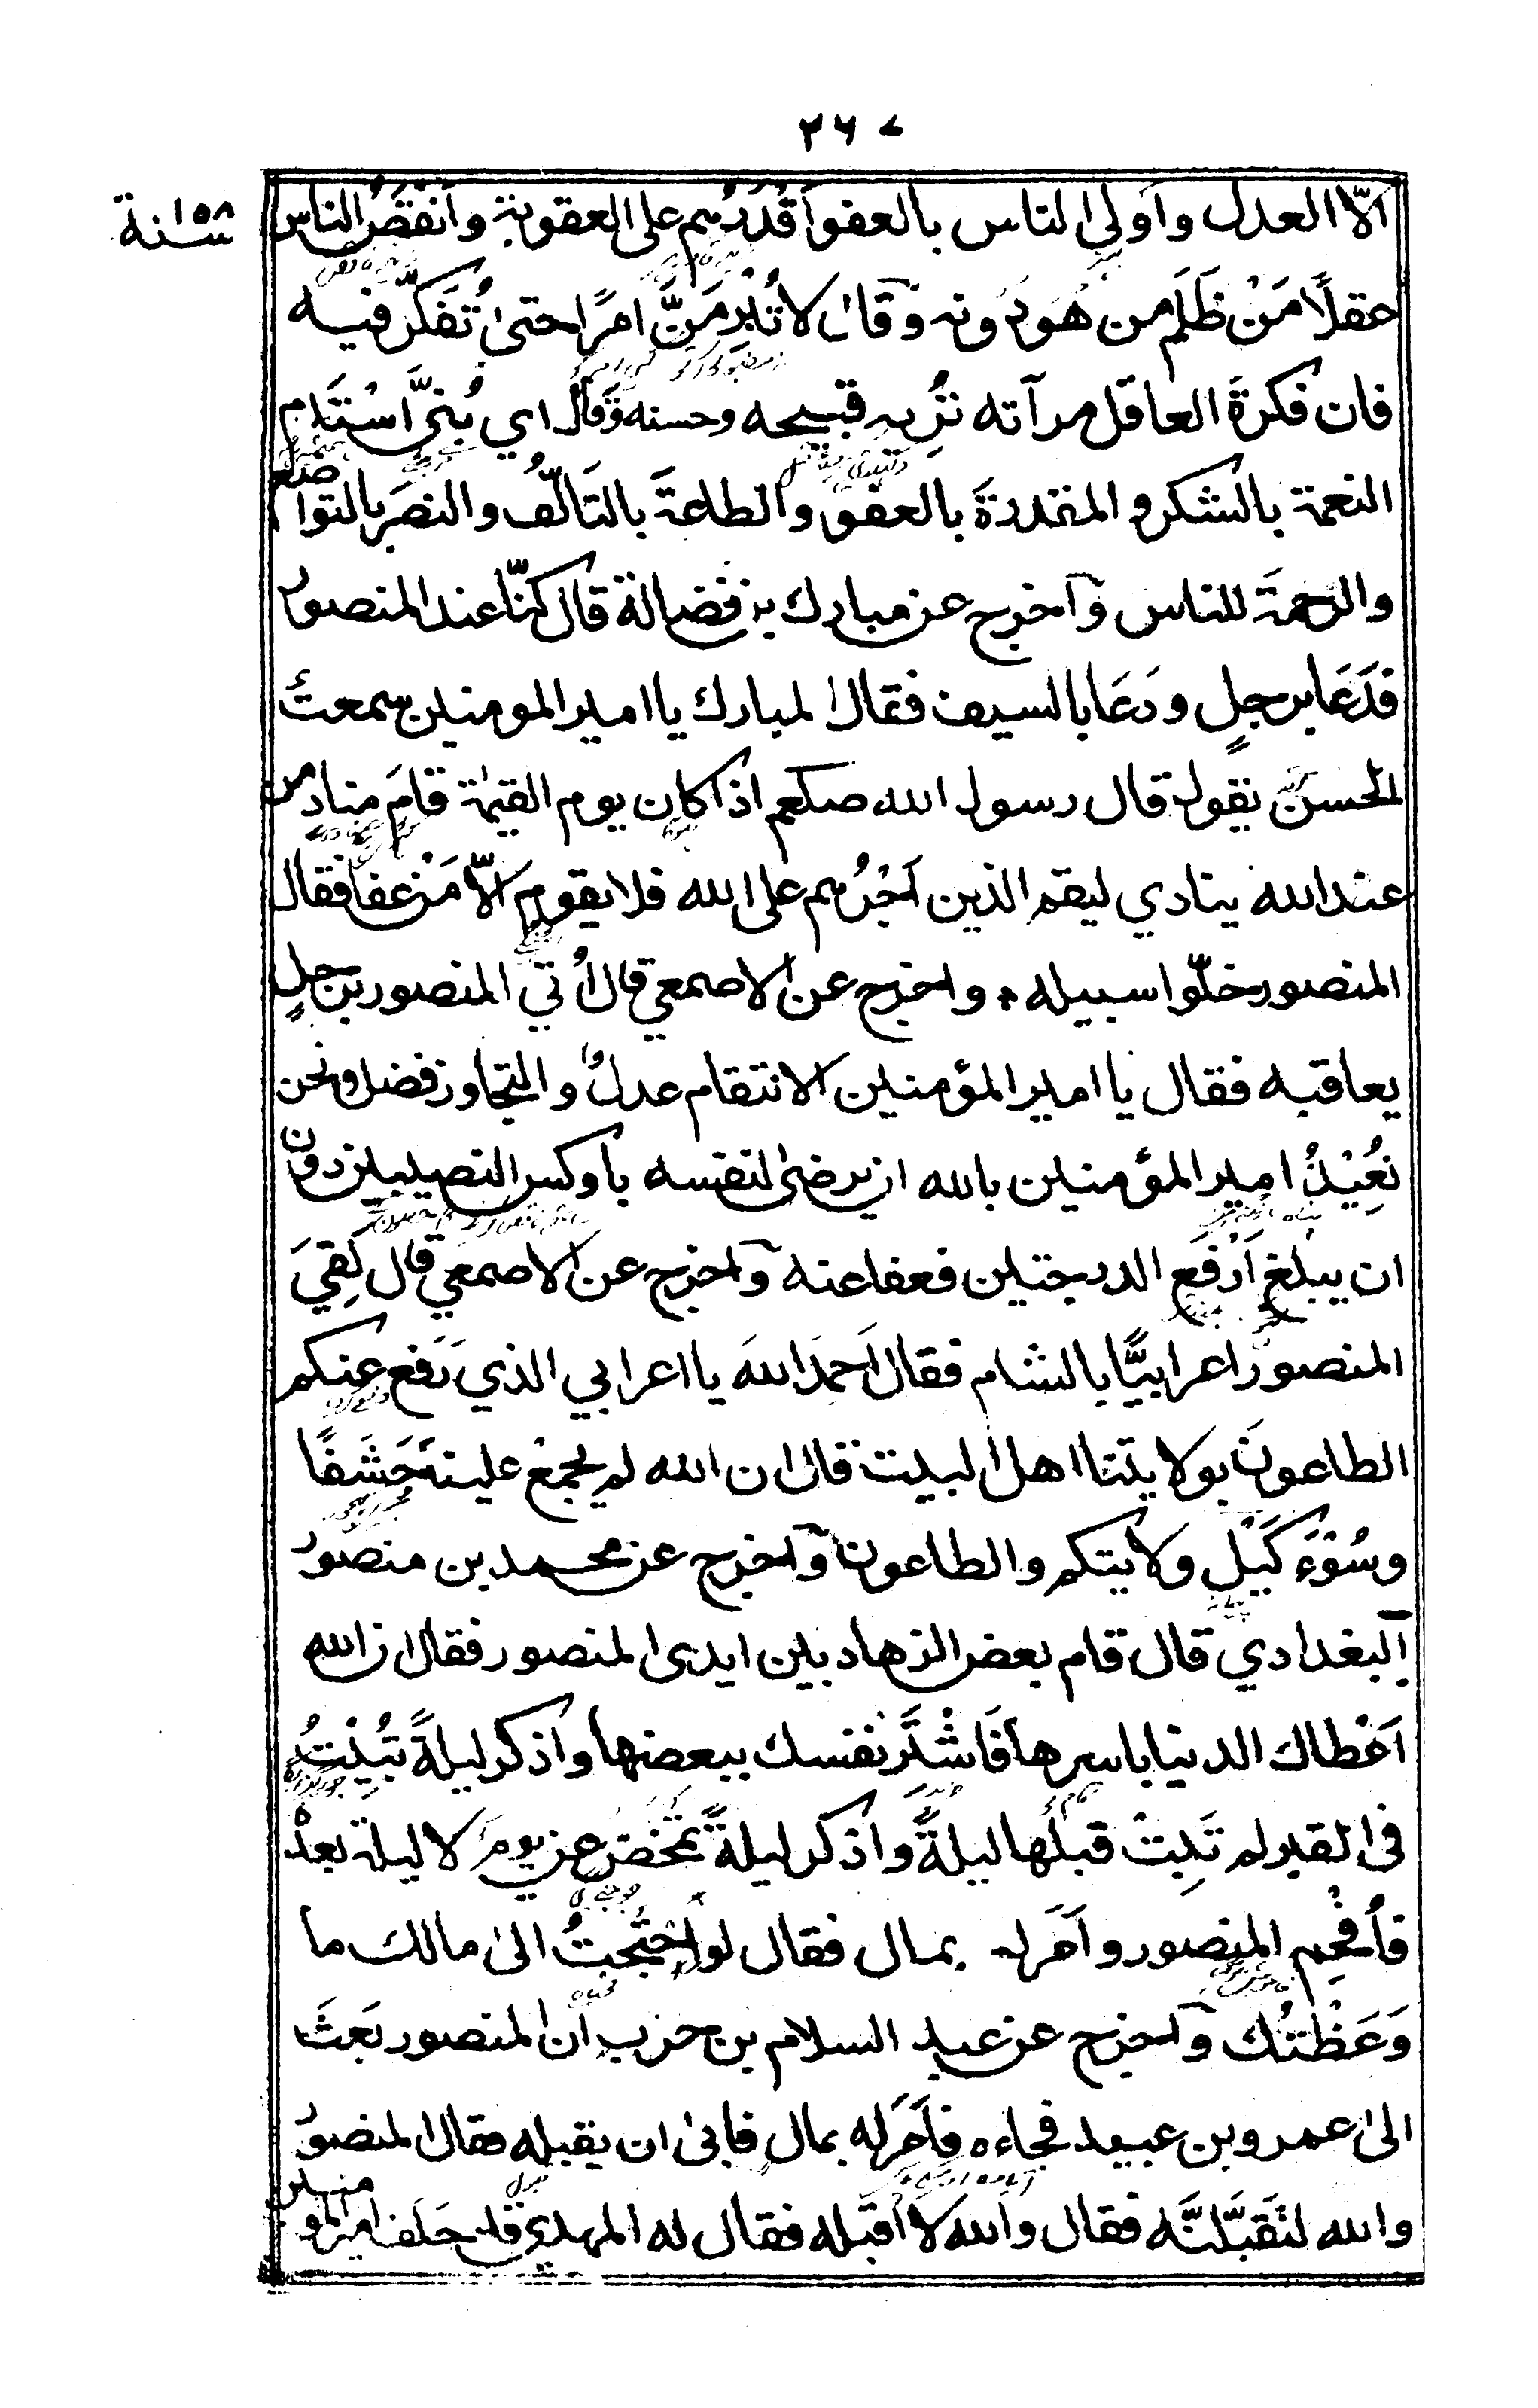 ٢٦٧
سنة ١٥٨
الّا العدل واَولی الناس بالعفو اَقْدَرُهم على العقوبة واَنْقَصُ الناس
عقلًا مَنْ ظَلَم من هُوَ دُونه وَقال لا تُبْرِمَنَّ امرًا حتىٰ تُفكّر فيه
فان فكرةَ العاقل مرآته تُرِيه قبيحه وحسنه وَقال اي بُنيَّ اسْتَدِم
النعمة بالشكر و المقدرةَ بالعفو والطاعةَ بالتَالُّف والنصرَ بالتواضع
والرحمةَ للناس وَاخرج عن مبارك بن فضالة قال كنّا عند المنصور
فدَعَا برجلٍ ودَعَا بالسيف فقال المبارك يا امير المومنين سمعتُ
الحسنَ يقول قال رسول الله صلعم اذا كان يوم القيٰمة قامَ منادٍ من
عند الله ينادي ليقم الذين اَجْرُهم على الله فلا يقوم الّا مَنْ عفا فقال
المنصور خلّوا سبيله * واخرج عن الاصمعي قال اُتي المنصور برجلٍ
يعاقبه فقال يا امير المؤمنين الانتقام عدلٌ والتجاوز فضل ونحن
نُعِيْذُ امير المؤمنين بالله ان يرضىٰ لنفسه باوكس النصيبين دون
ان يبلغ اَرْفَع الدرجتين فعفا عنه وَاخرج عن الاصمعي قال لَقِيَ
المنصور اعرابيًّا بالشام فقال اَحمد اللهَ يا اعرابي الذي رَفع عنكم
الطاعونَ بولايتنا اهل البيت قال ان الله لم يجمعْ علينا حَشَفًا
وسُوْءَ كَيْلٍ ولايتكم والطاعون وَاخرج عن محمد بن منصور
البغدادي قال قام بعض الزهاد بين ايدى المنصور فقال ان الله
اَعْطاك الدنيا باسرها فَاشْتَرِ نفسك ببعضها واذكر ليلةً تَبِيْتُ
فى القبر لم تَبِتْ قبلها ليلةً واذكر ليلةً تمخّض عن يوم لا ليلة بعدهٗ
فاُفْحِم المنصور واَمَر له بمال فقال لو احْتَجْتُ الىٰ مالك ما
وَعَظْتُك وَاخرج عن عبد السلام بن حرب ان المنصور بَعَثَ
الىٰ عمرو بن عبيد فجاءه فاَمَر له بمالٍ فابىٰ ان يقبله فقال المنصور
والله لتَقبَلَنَّه فقال والله لا اَقبله فقال له المهدي قد حَلَف امير المومنين